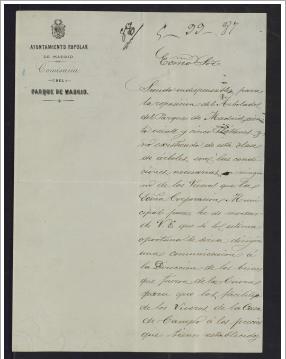 5-99-87
AYUNTAMIENTO POPULAR
DE MADRID
Comisaría
DEL
PARQUE DE MADRID.
Excmo Sor
Siendo indispensable para
la reposicion del Arbolado
del Parque de Madrid
y cinco
no existiendo de esta clase
de arboles, con las condi
ciones necesarias en ningu
no de los Viveros que la
Excma Corporacion Muni
cipal posee, he de merecer
de V.E. que si lo estima
oportuno se sirva dirigir
una comunicacion á
la Direccion de los bienes
que fueron de la Corona
para que los facilite
de los Viveros de la Casa
de Campo á los precios
que tienen establecido